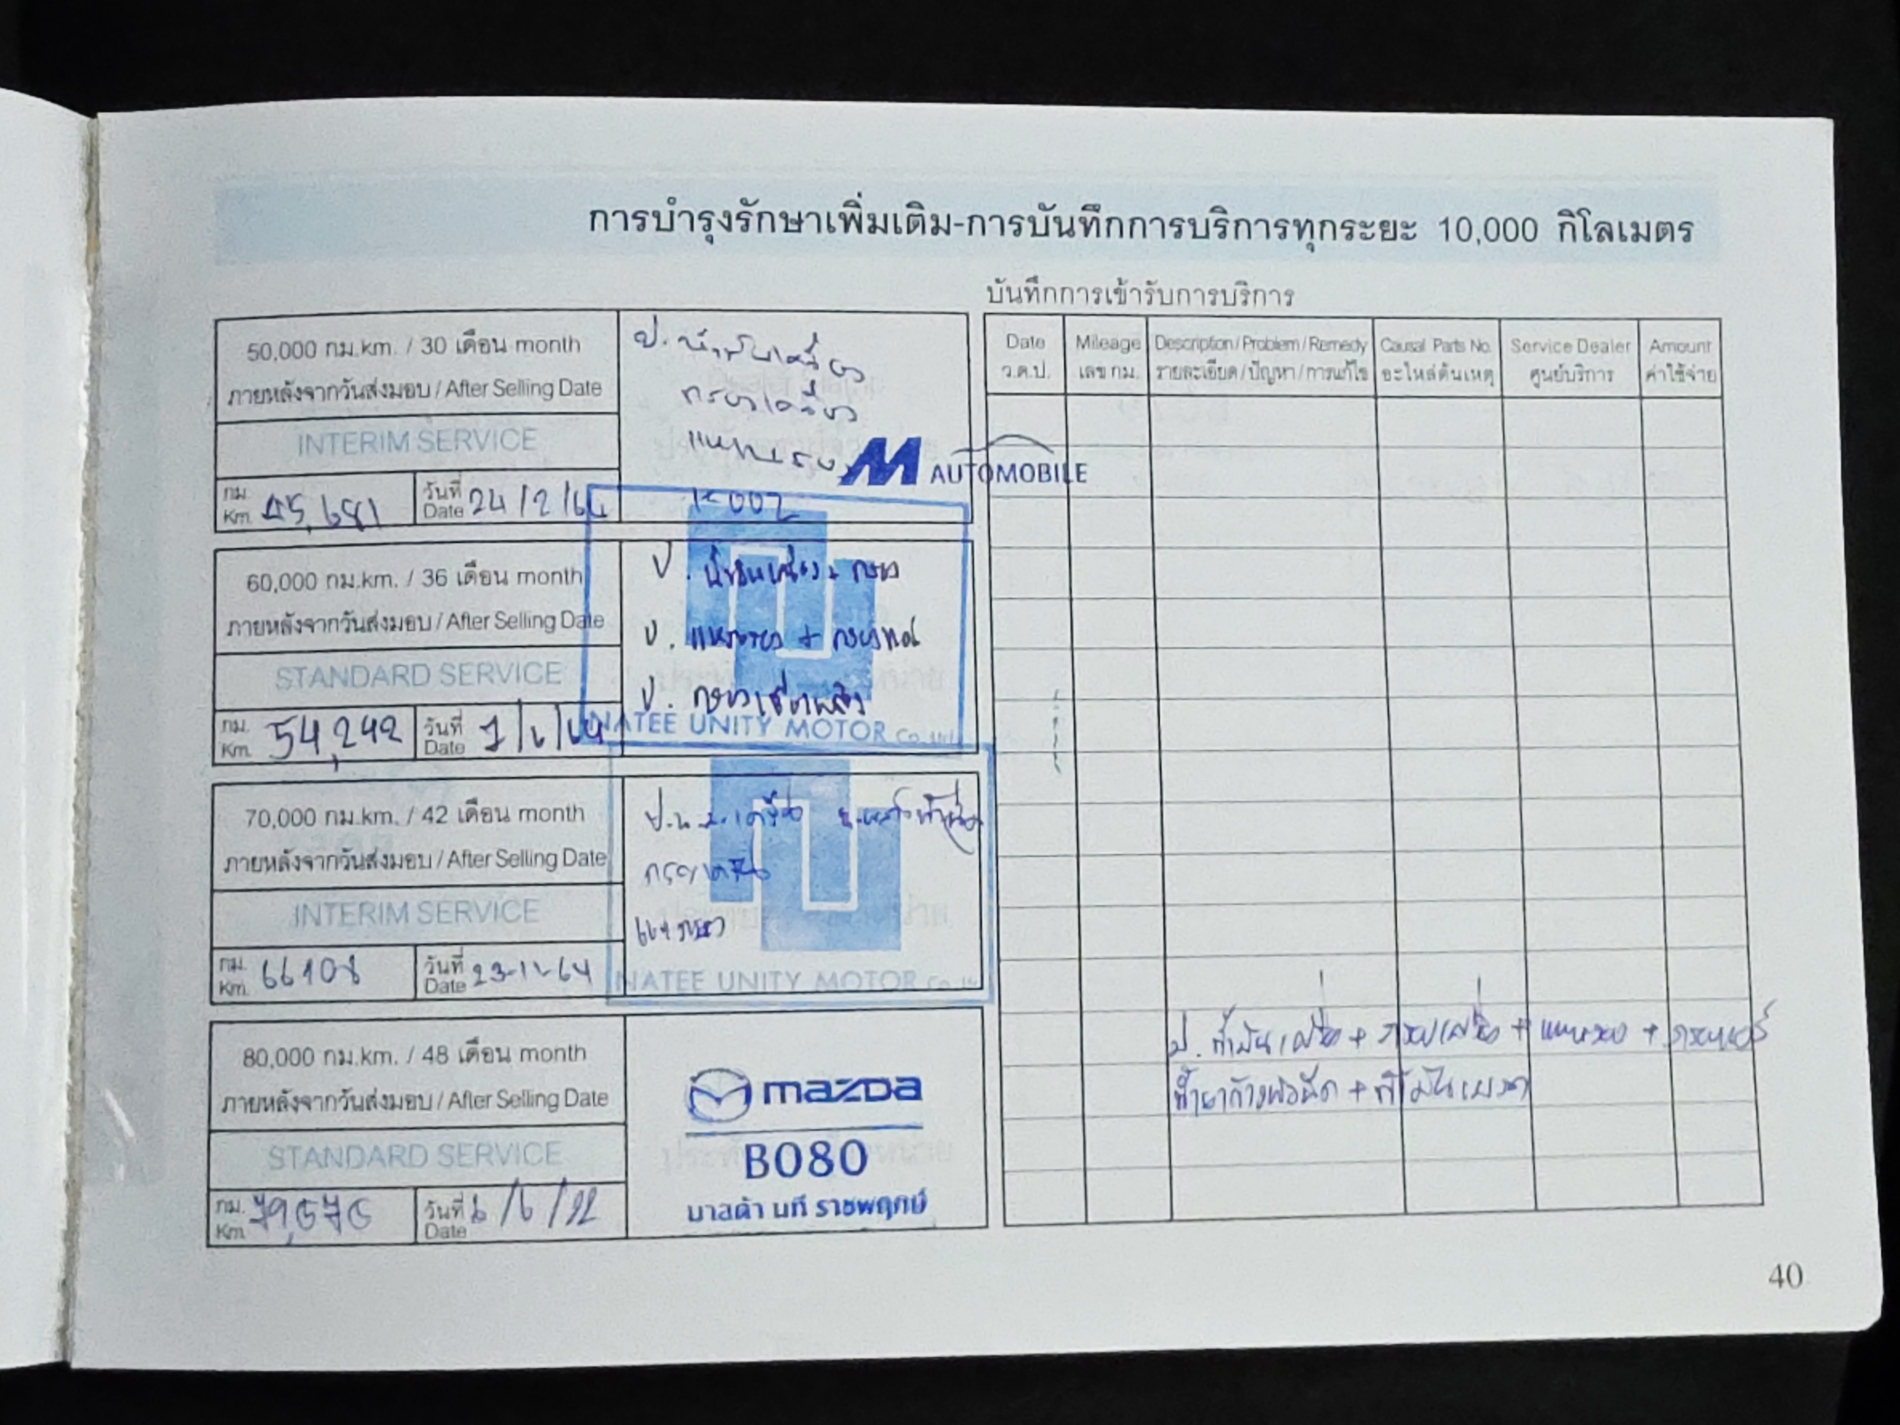 การบำรุงรักษาเพิ่มเติม-การบันทึกการบริการทุกระยะ 10,000 กิโลเมตร
50,000 กม.km. / 30 เดือน month
ภายหลังจากวันส่งมอบ / After Selling Date
INTERIM SERVICE
กม. Km. 45,681 วันที่ Date 24/2/64
ป. น้ำมันเครื่อง
กรองเครื่อง
แหวนรอง
M AUTOMOBILE
K002
60,000 กม.km. / 36 เดือน month
ภายหลังจากวันส่งมอบ / After Selling Date
STANDARD SERVICE
กม. Km. 54,242 วันที่ Date
ป. น้ำมันเครื่อง + กรอง
ป. แหวนรอง + กรองแอร์
ป. กรองเชื้อเพลิง
NATEE UNITY MOTOR Co.,Ltd.
70,000 กม.km. / 42 เดือน month
ภายหลังจากวันส่งมอบ / After Selling Date
INTERIM SERVICE
กม. Km. 66108 วันที่ Date 23-11-64
ป.น.ม.เครื่อง
กรองเครื่อง
แหวนรอง
NATEE UNITY MOTOR Co.,Ltd.
80,000 กม.km. / 48 เดือน month
ภายหลังจากวันส่งมอบ / After Selling Date
STANDARD SERVICE
กม. Km. 79,676 วันที่ Date 6/6/22
mazda
B080
มาสด้า นที ราชพฤกษ์
บันทึกการเข้ารับการบริการ
Date Mileage Description / Problem / Remedy Causal Parts No. Service Dealer Amount
ว.ด.ป. เลข กม. รายละเอียด / ปัญหา / การแก้ไข อะไหล่ต้นเหตุ ศูนย์บริการ ค่าใช้จ่าย
ป. น้ำมันเครื่อง + กรองเครื่อง + แหวนรอง + กรองแอร์
น้ำยาล้างหัวฉีด + น้ำมันเบรก
40